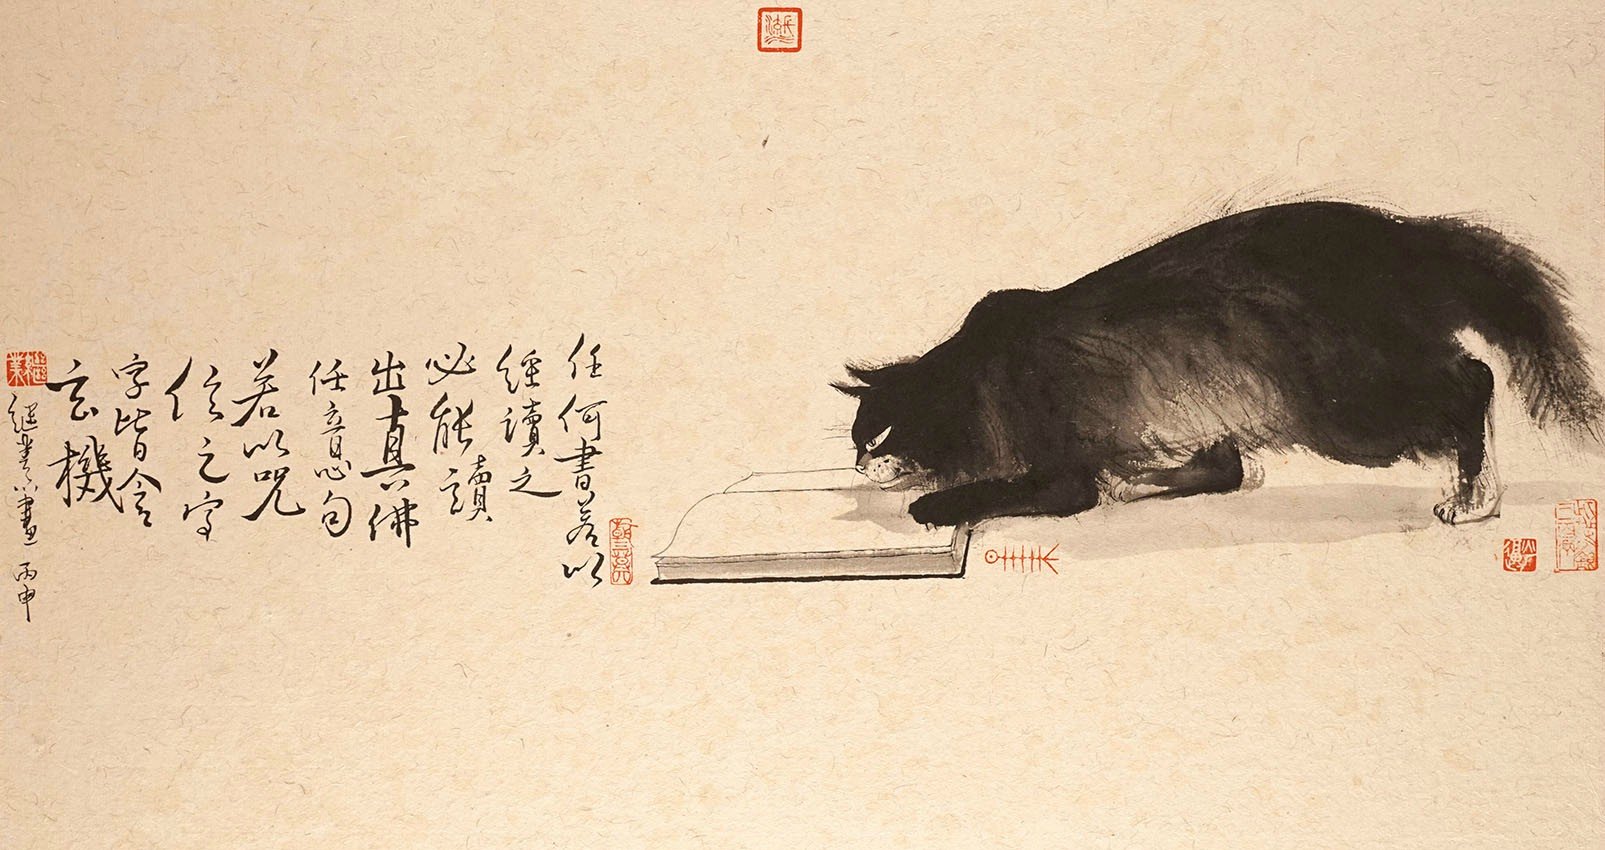 任何書若以
經讀之
必能讀
出真佛
任意句
若以咒
信之字
字皆含
玄機
畫 丙申